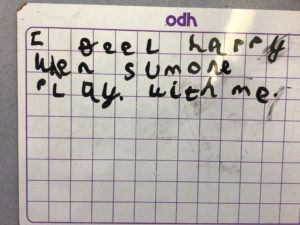 odh
I feel happy
when sumore
Play. with me.